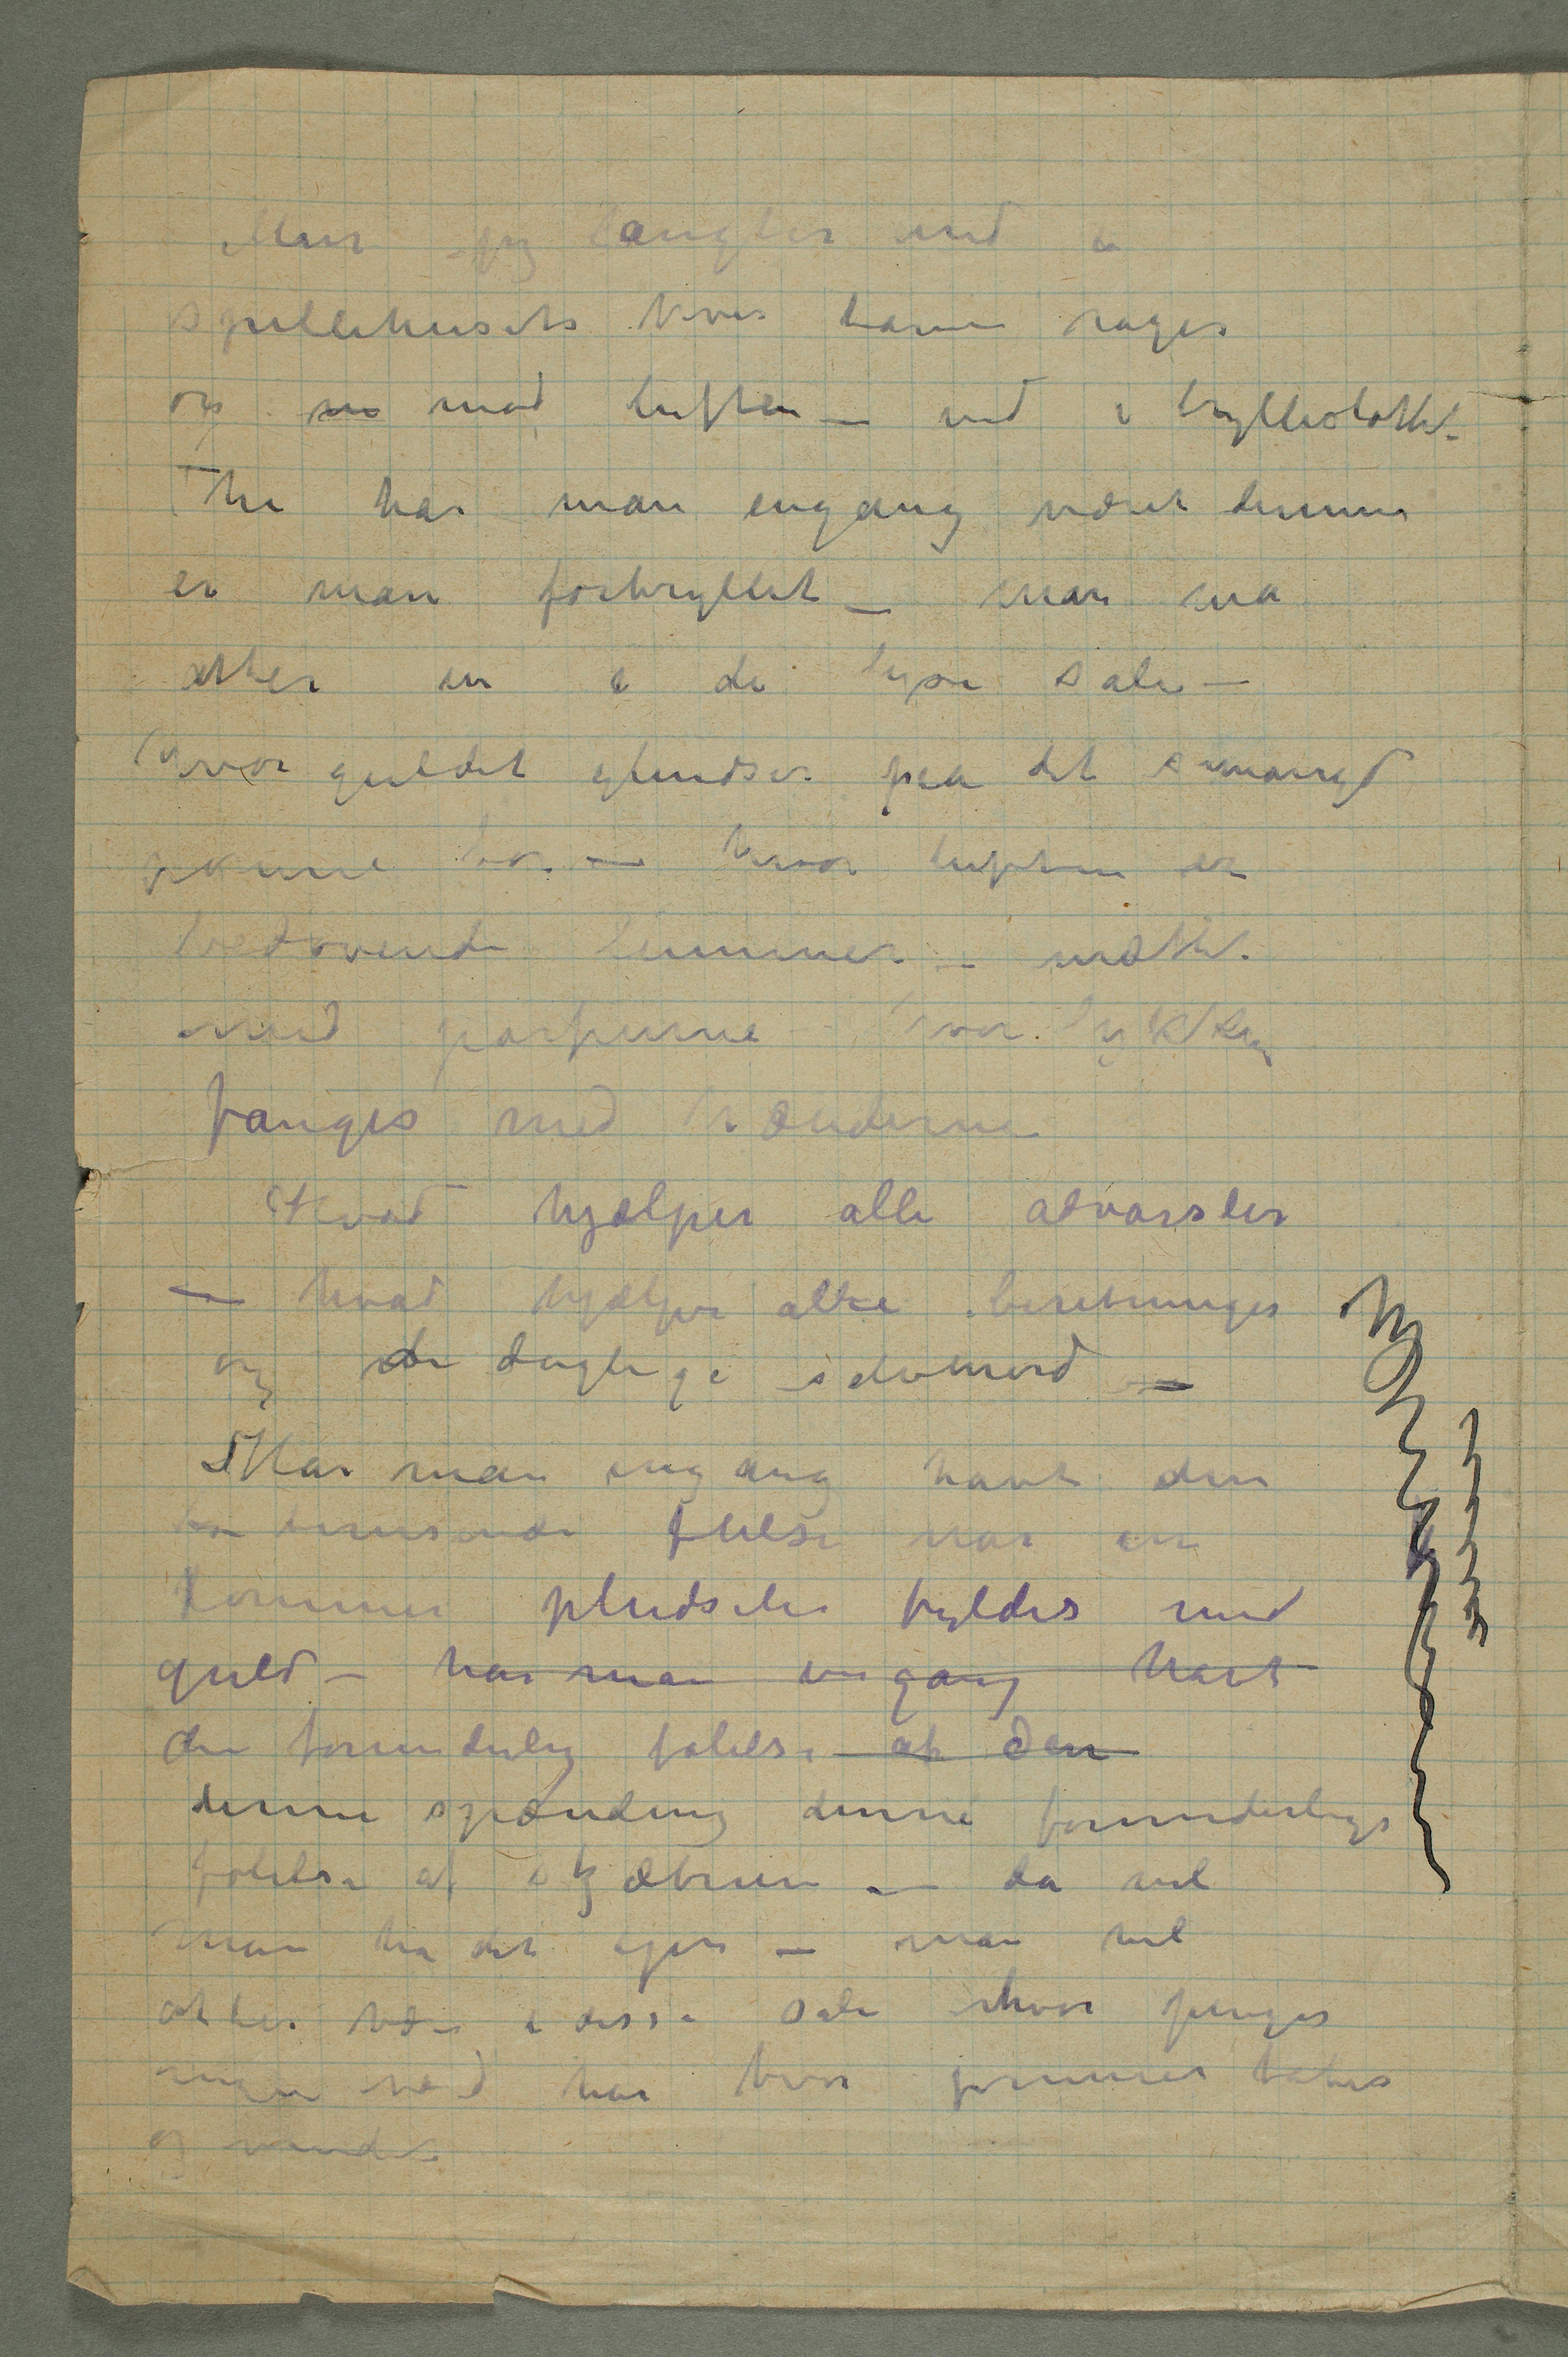 Men jeg længter ind i
spillehusets hvis taarne rager
op mod luften – ind i trylleslottet.
Thi har man engang været derinde
er man fortryllet – man må
atter ind i de lyse sale –
hvor guldet glindser paa det smaragd
grønne bor – hvor luften er
bedøvende lummer – mættet
med parfume – hvor lykken
fanges med hænderne
Hvad hjælper alle advarsler
– hvad hjælper alle beretninger
og de daglige selvmord –
Har man engang havt den
berusende følelse når en
lommer pludselig fyldes med
guld – har man engang havt
den forunderlig følelse at den
denne spænding denne forunderlige
følelse af skjæbnen – da vil
man ha det igjen – man vil
atter være i disse sale hvor penger
ingen værd har hvor formuer tabes
og vindes